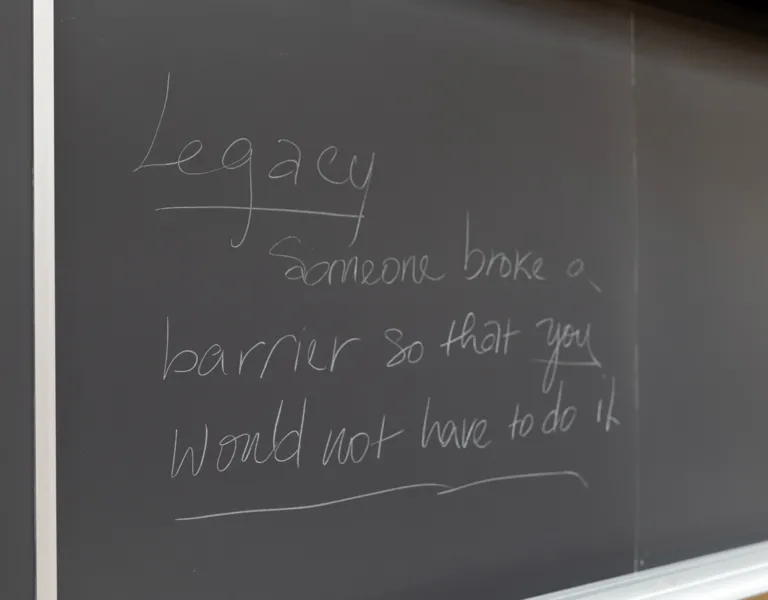 Legacy
Someone broke a
barrier so that you
would not have to do it